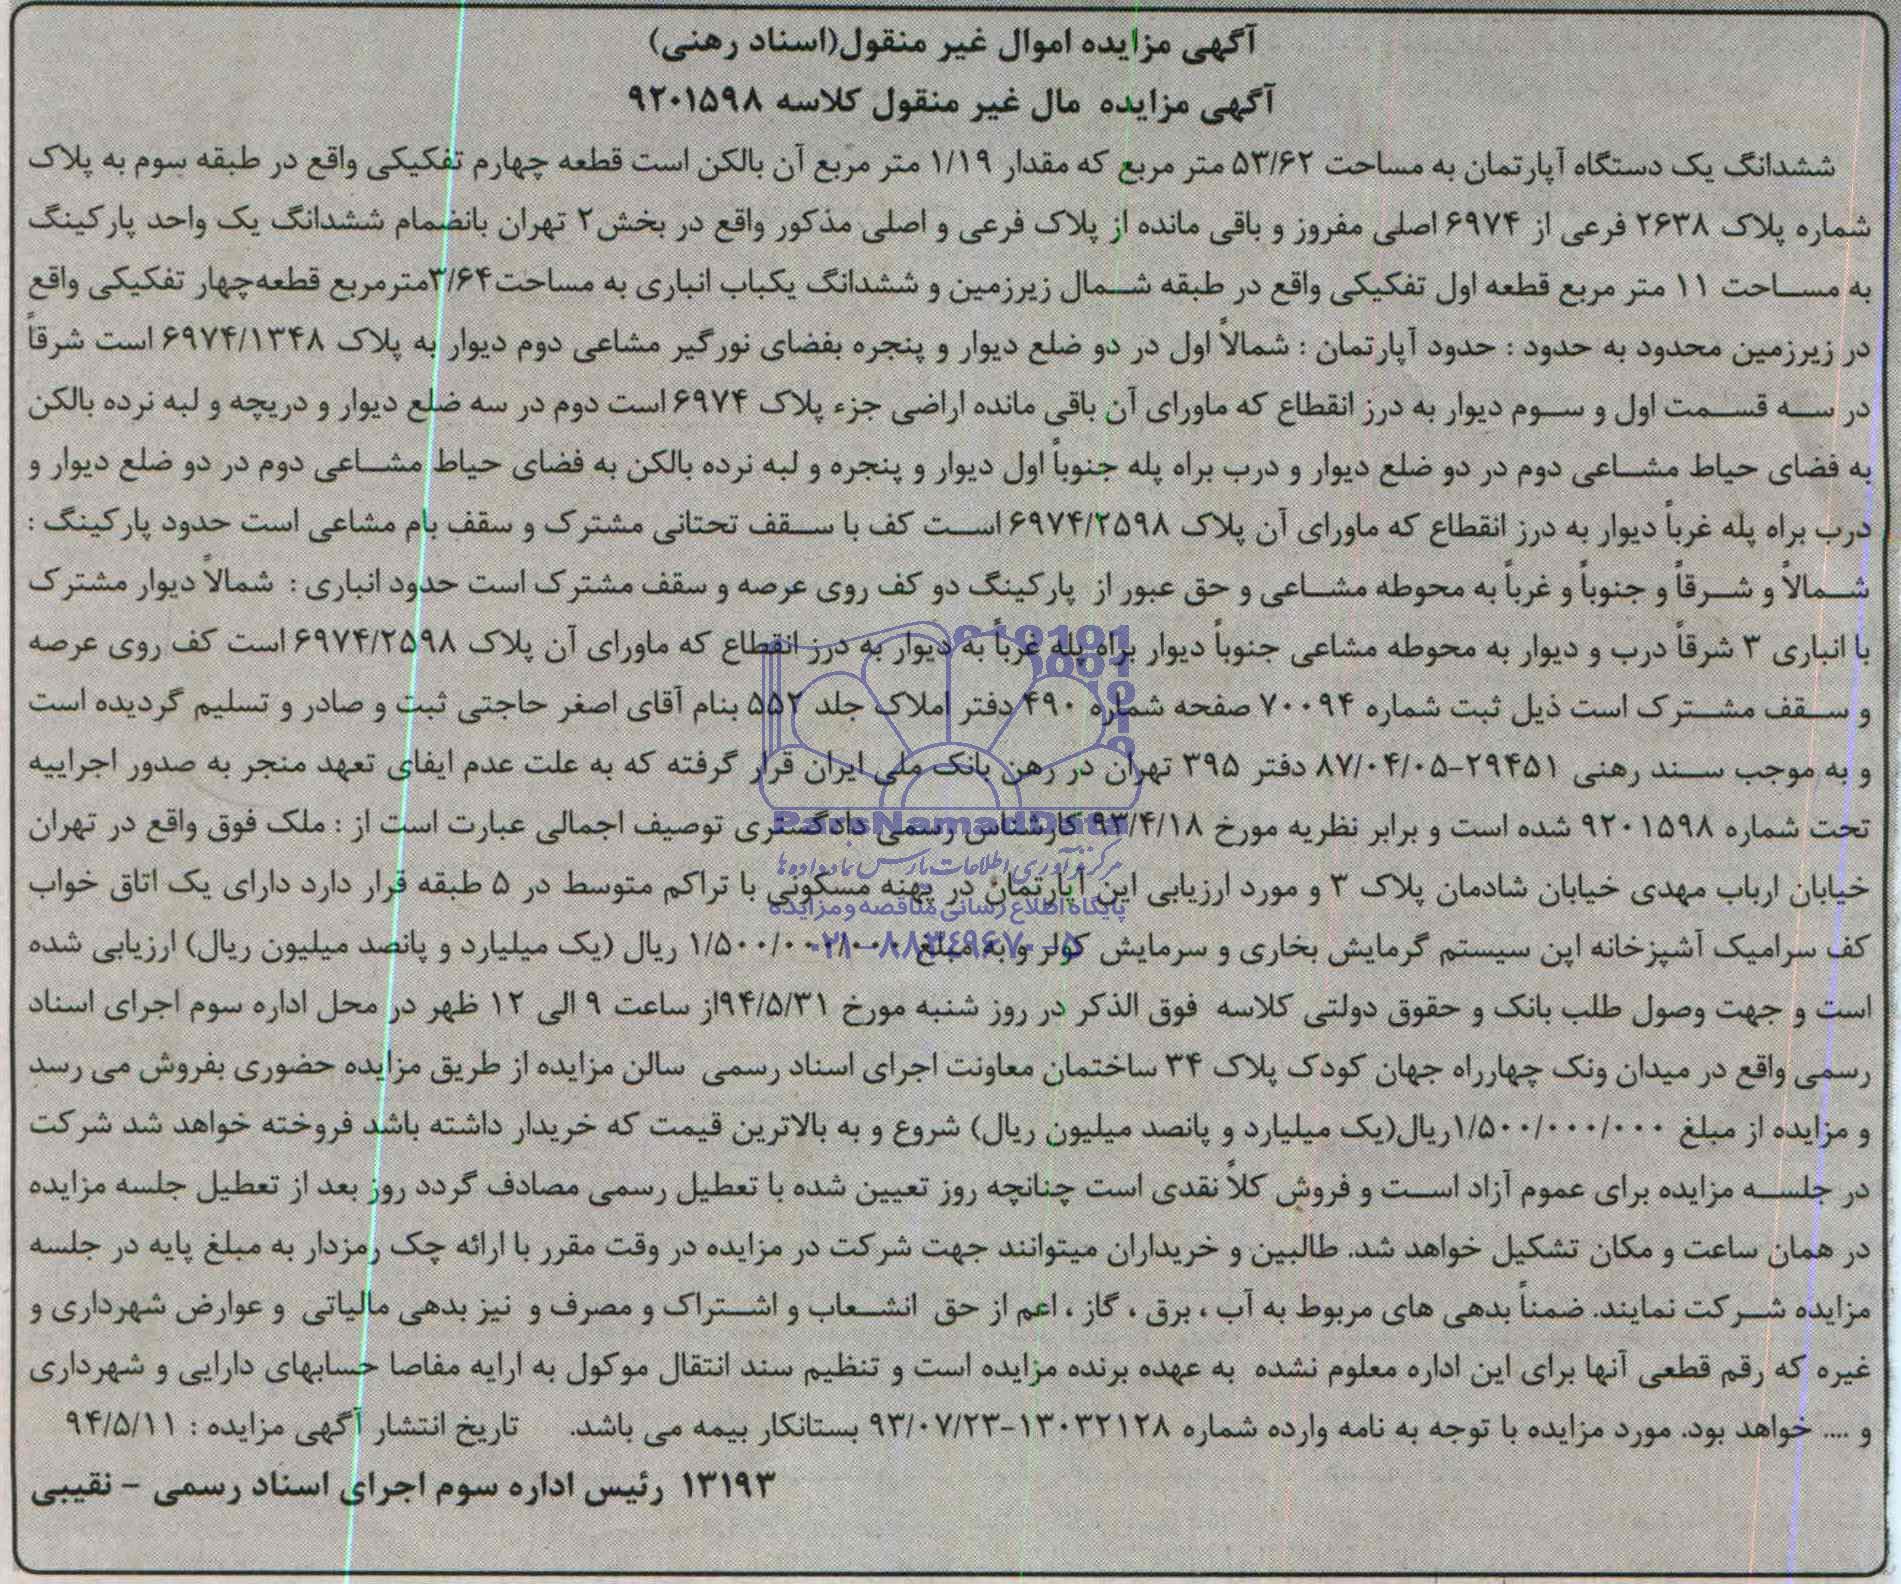 آگهی مزایده اموال غیر منقول(اسناد رهنی)
آگهی مزایده مال غیر منقول کلاسه ۹۲۰۱۵۹۸
ششدانگ یک دستگاه آپارتمان به مساحت ۵۳/۶۲ متر مربع که مقدار ۱/۱۹ متر مربع آن بالکن است قطعه چهارم تفکیکی واقع در طبقه سوم به پلاک
شماره پلاک ۲۶۳۸ فرعی از ۶۹۷۴ اصلی مفروز و باقی مانده از پلاک فرعی و اصلی مذکور واقع در بخش۲ تهران بانضمام ششدانگ یک واحد پارکینگ
به مساحت ۱۱ متر مربع قطعه اول تفکیکی واقع در طبقه شمال زیرزمین و ششدانگ یکباب انباری به مساحت۳/۶۴مترمربع قطعه‌چهار تفکیکی واقع
در زیرزمین محدود به حدود : حدود آپارتمان : شمالاً اول در دو ضلع دیوار و پنجره بفضای نورگیر مشاعی دوم دیوار به پلاک ۶۹۷۴/۱۳۴۸ است شرقاً
در سه قسمت اول و سوم دیوار به درز انقطاع که ماورای آن باقی مانده اراضی جزء پلاک ۶۹۷۴ است دوم در سه ضلع دیوار و دریچه و لبه نرده بالکن
به فضای حیاط مشاعی دوم در دو ضلع دیوار و درب براه پله جنوباً اول دیوار و پنجره و لبه نرده بالکن به فضای حیاط مشاعی دوم در دو ضلع دیوار و
درب براه پله غرباً دیوار به درز انقطاع که ماورای آن پلاک ۶۹۷۴/۲۵۹۸ است کف با سقف تحتانی مشترک و سقف بام مشاعی است حدود پارکینگ :
شمالاً و شرقاً و جنوباً و غرباً به محوطه مشاعی و حق عبور از پارکینگ دو کف روی عرصه و سقف مشترک است حدود انباری : شمالاً دیوار مشترک
با انباری ۳ شرقاً درب و دیوار به محوطه مشاعی جنوباً دیوار براه پله غرباً به دیوار به درز انقطاع که ماورای آن پلاک ۶۹۷۴/۲۵۹۸ است کف روی عرصه
و سقف مشترک است ذیل ثبت شماره ۷۰۰۹۴ صفحه شماره ۴۹۰ دفتر املاک جلد ۵۵۲ بنام آقای اصغر حاجتی ثبت و صادر و تسلیم گردیده است
و به موجب سند رهنی ۲۹۴۵۱-۸۷/۰۴/۰۵ دفتر ۳۹۵ تهران در رهن بانک ملی ایران قرار گرفته که به علت عدم ایفای تعهد منجر به صدور اجراییه
تحت شماره ۹۲۰۱۵۹۸ شده است و برابر نظریه مورخ ۹۳/۴/۱۸ کارشناس رسمی دادگستری توصیف اجمالی عبارت است از : ملک فوق واقع در تهران
خیابان ارباب مهدی خیابان شادمان پلاک ۳ و مورد ارزیابی این آپارتمان در پهنه مسکونی با تراکم متوسط در ۵ طبقه قرار دارد دارای یک اتاق خواب
کف سرامیک آشپزخانه اپن سیستم گرمایش بخاری و سرمایش کولر و به مبلغ ۱/۵۰۰/۰۰۰/۰۰۰ ریال (یک میلیارد و پانصد میلیون ریال) ارزیابی شده
است و جهت وصول طلب بانک و حقوق دولتی کلاسه فوق الذکر در روز شنبه مورخ ۹۴/۵/۳۱از ساعت ۹ الی ۱۲ ظهر در محل اداره سوم اجرای اسناد
رسمی واقع در میدان ونک چهارراه جهان کودک پلاک ۳۴ ساختمان معاونت اجرای اسناد رسمی سالن مزایده از طریق مزایده حضوری بفروش می رسد
و مزایده از مبلغ ۱/۵۰۰/۰۰۰/۰۰۰ریال(یک میلیارد و پانصد میلیون ریال) شروع و به بالاترین قیمت که خریدار داشته باشد فروخته خواهد شد شرکت
در جلسه مزایده برای عموم آزاد است و فروش کلاً نقدی است چنانچه روز تعیین شده با تعطیل رسمی مصادف گردد روز بعد از تعطیل جلسه مزایده
در همان ساعت و مکان تشکیل خواهد شد. طالبین و خریداران میتوانند جهت شرکت در مزایده در وقت مقرر با ارائه چک رمزدار به مبلغ پایه در جلسه
مزایده شرکت نمایند. ضمناً بدهی های مربوط به آب ، برق ، گاز ، اعم از حق انشعاب و اشتراک و مصرف و نیز بدهی مالیاتی و عوارض شهرداری و
غیره که رقم قطعی آنها برای این اداره معلوم نشده به عهده برنده مزایده است و تنظیم سند انتقال موکول به ارایه مفاصا حسابهای دارایی و شهرداری
و .... خواهد بود. مورد مزایده با توجه به نامه وارده شماره ۱۳۰۳۲۱۲۸-۹۳/۰۷/۲۳ بستانکار بیمه می باشد. تاریخ انتشار آگهی مزایده : ۹۴/۵/۱۱
۱۳۱۹۳ رئیس اداره سوم اجرای اسناد رسمی – نقیبی
ParsNamadData
مرکز فرآوری اطلاعات پارس نماد داده‌ها
پایگاه اطلاع رسانی مناقصه و مزایده
۰۲۱-۸۸۳۴۹۶۷۰-۵